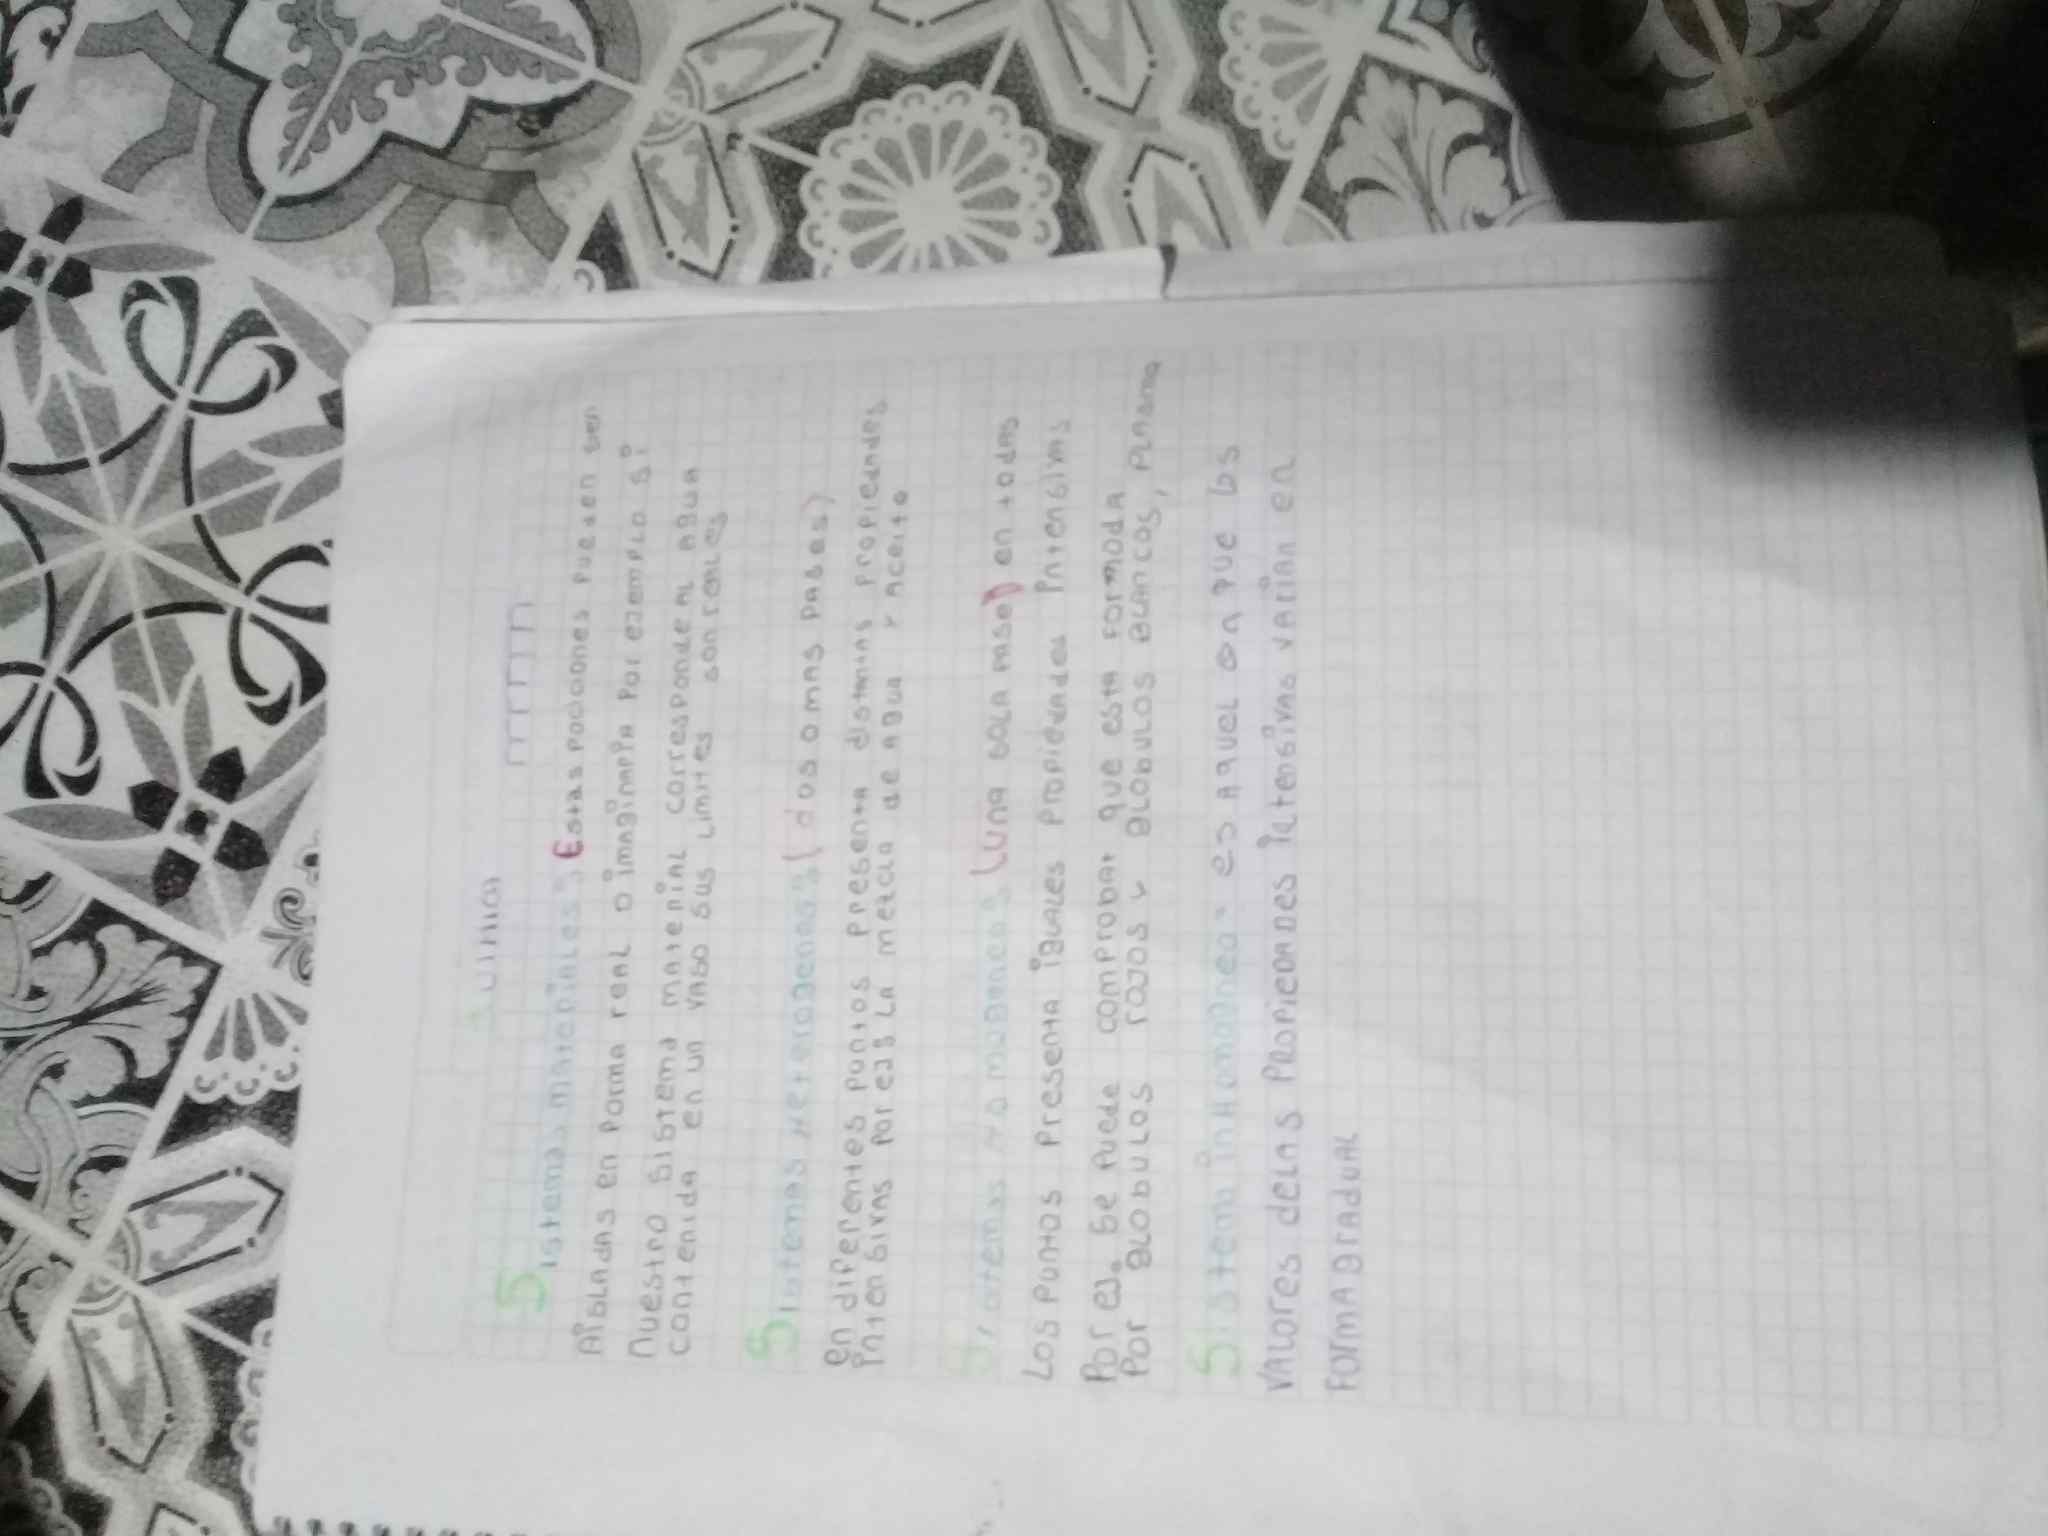 Sistemas materiales: Estas pociones pueden ser
Aisladas en forma real o imaginaria por ejemplo si
nuestro sistema material corresponde al agua
contenida en un vaso sus limites son reales
Sistemas Heterogeneos: (dos o mas fases)
en diferentes puntos presenta distantas propiedades
intensivas por ej: La mezcla de agua y aceite
Sistemas Homogeneos: (una sola fase) en todas
Los puntos presenta iguales propiedades intensivas
Por ej. se puede comprobar que esta formoda
Por globulos rojos y globulos blancos, plasma
Sistem inHomogneo = es aquel en que los
Valores de las propiedades intensivas varian en
Forma gradual